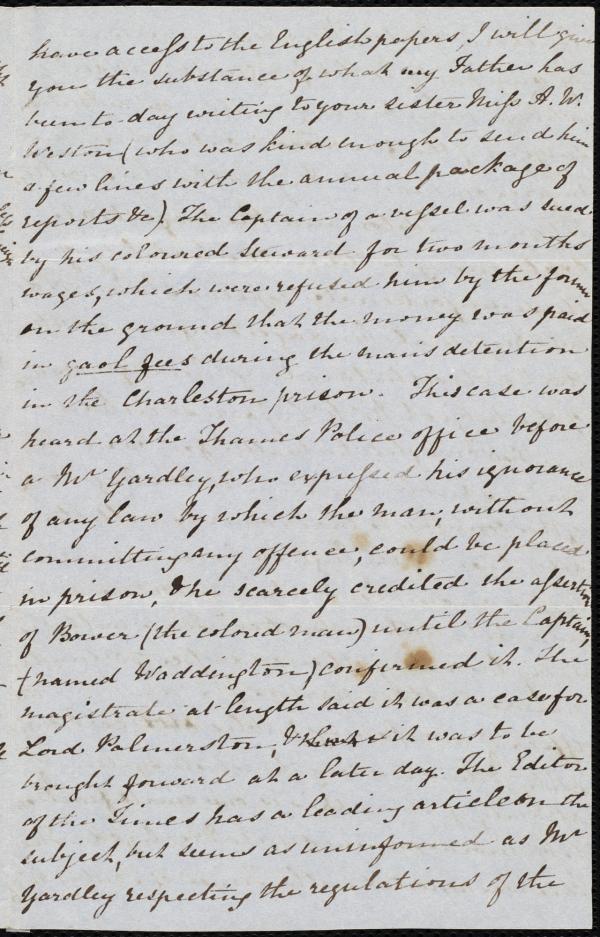 have access to the English papers, I will give
you the substance of what my Father has
been to-day writing to your sister Miss A. W.
Weston (who was kind enough to send him
a few lines with the annual package of
reports &c). The Captain of a vessel was sued
by his coloured Steward for two months
wages, which were refused him by the former
on the ground that the money was paid
in gaol fees during the man's detention
in the Charleston prison. This case was
heard at the Thames Police office before
a Mr Yardley, who expressed his ignorance
of any law by which the man, without
committing any offence, could be placed
in prison, & he scarcely credited the assertion
of Bower (the colored man) until the Captain,
(named Waddington) confirmed it. The
magistrate at length said it was a case for
Lord Palmerston, & it was to be
brought forward at a later day. The Editor
of the Times has a leading article on the
subject, but seems as uninformed as Mr
Yardley respecting the regulations of the